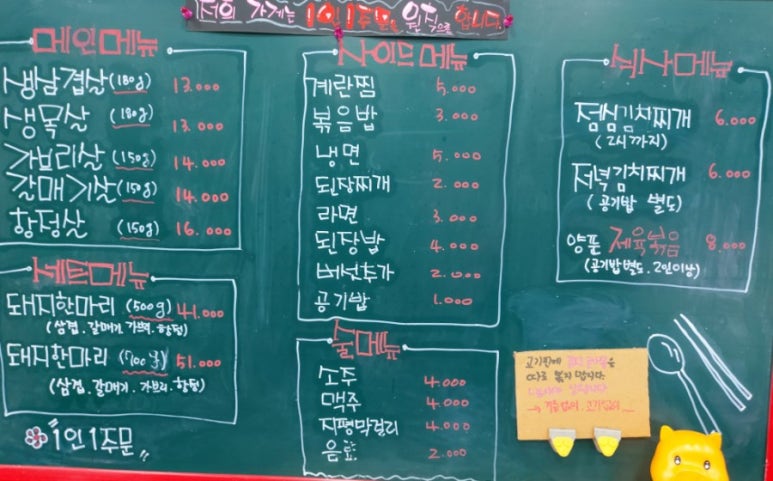 저희 가게는 1인 1주문 원칙으로 합니다.
메인메뉴
생삼겹살 (180g) 13.000
생목살 (180g) 13.000
가브리살 (150g) 14.000
갈매기살 (150g) 14.000
항정살 (150g) 16.000
세트메뉴
돼지한마리 (500g) 41.000
(삼겹.갈매기.가브리.항정)
돼지한마리 (700g) 51.000
(삼겹.갈매기.가브리.항정)
"1인1주문"
사이드메뉴
계란찜 5.000
볶음밥 3.000
냉면 5.000
된장찌개 2.000
라면 3.000
된장밥 4.000
버섯추가 2.000
공기밥 1.000
술메뉴
소주 4.000
맥주 4.000
지평막걸리 4.000
음료 2.000
식사메뉴
점심김치찌개 6.000
(2시까지)
저녁김치찌개 6.000
(공기밥 별도)
양푼 제육볶음 8.000
(공기밥별도.2인이상)